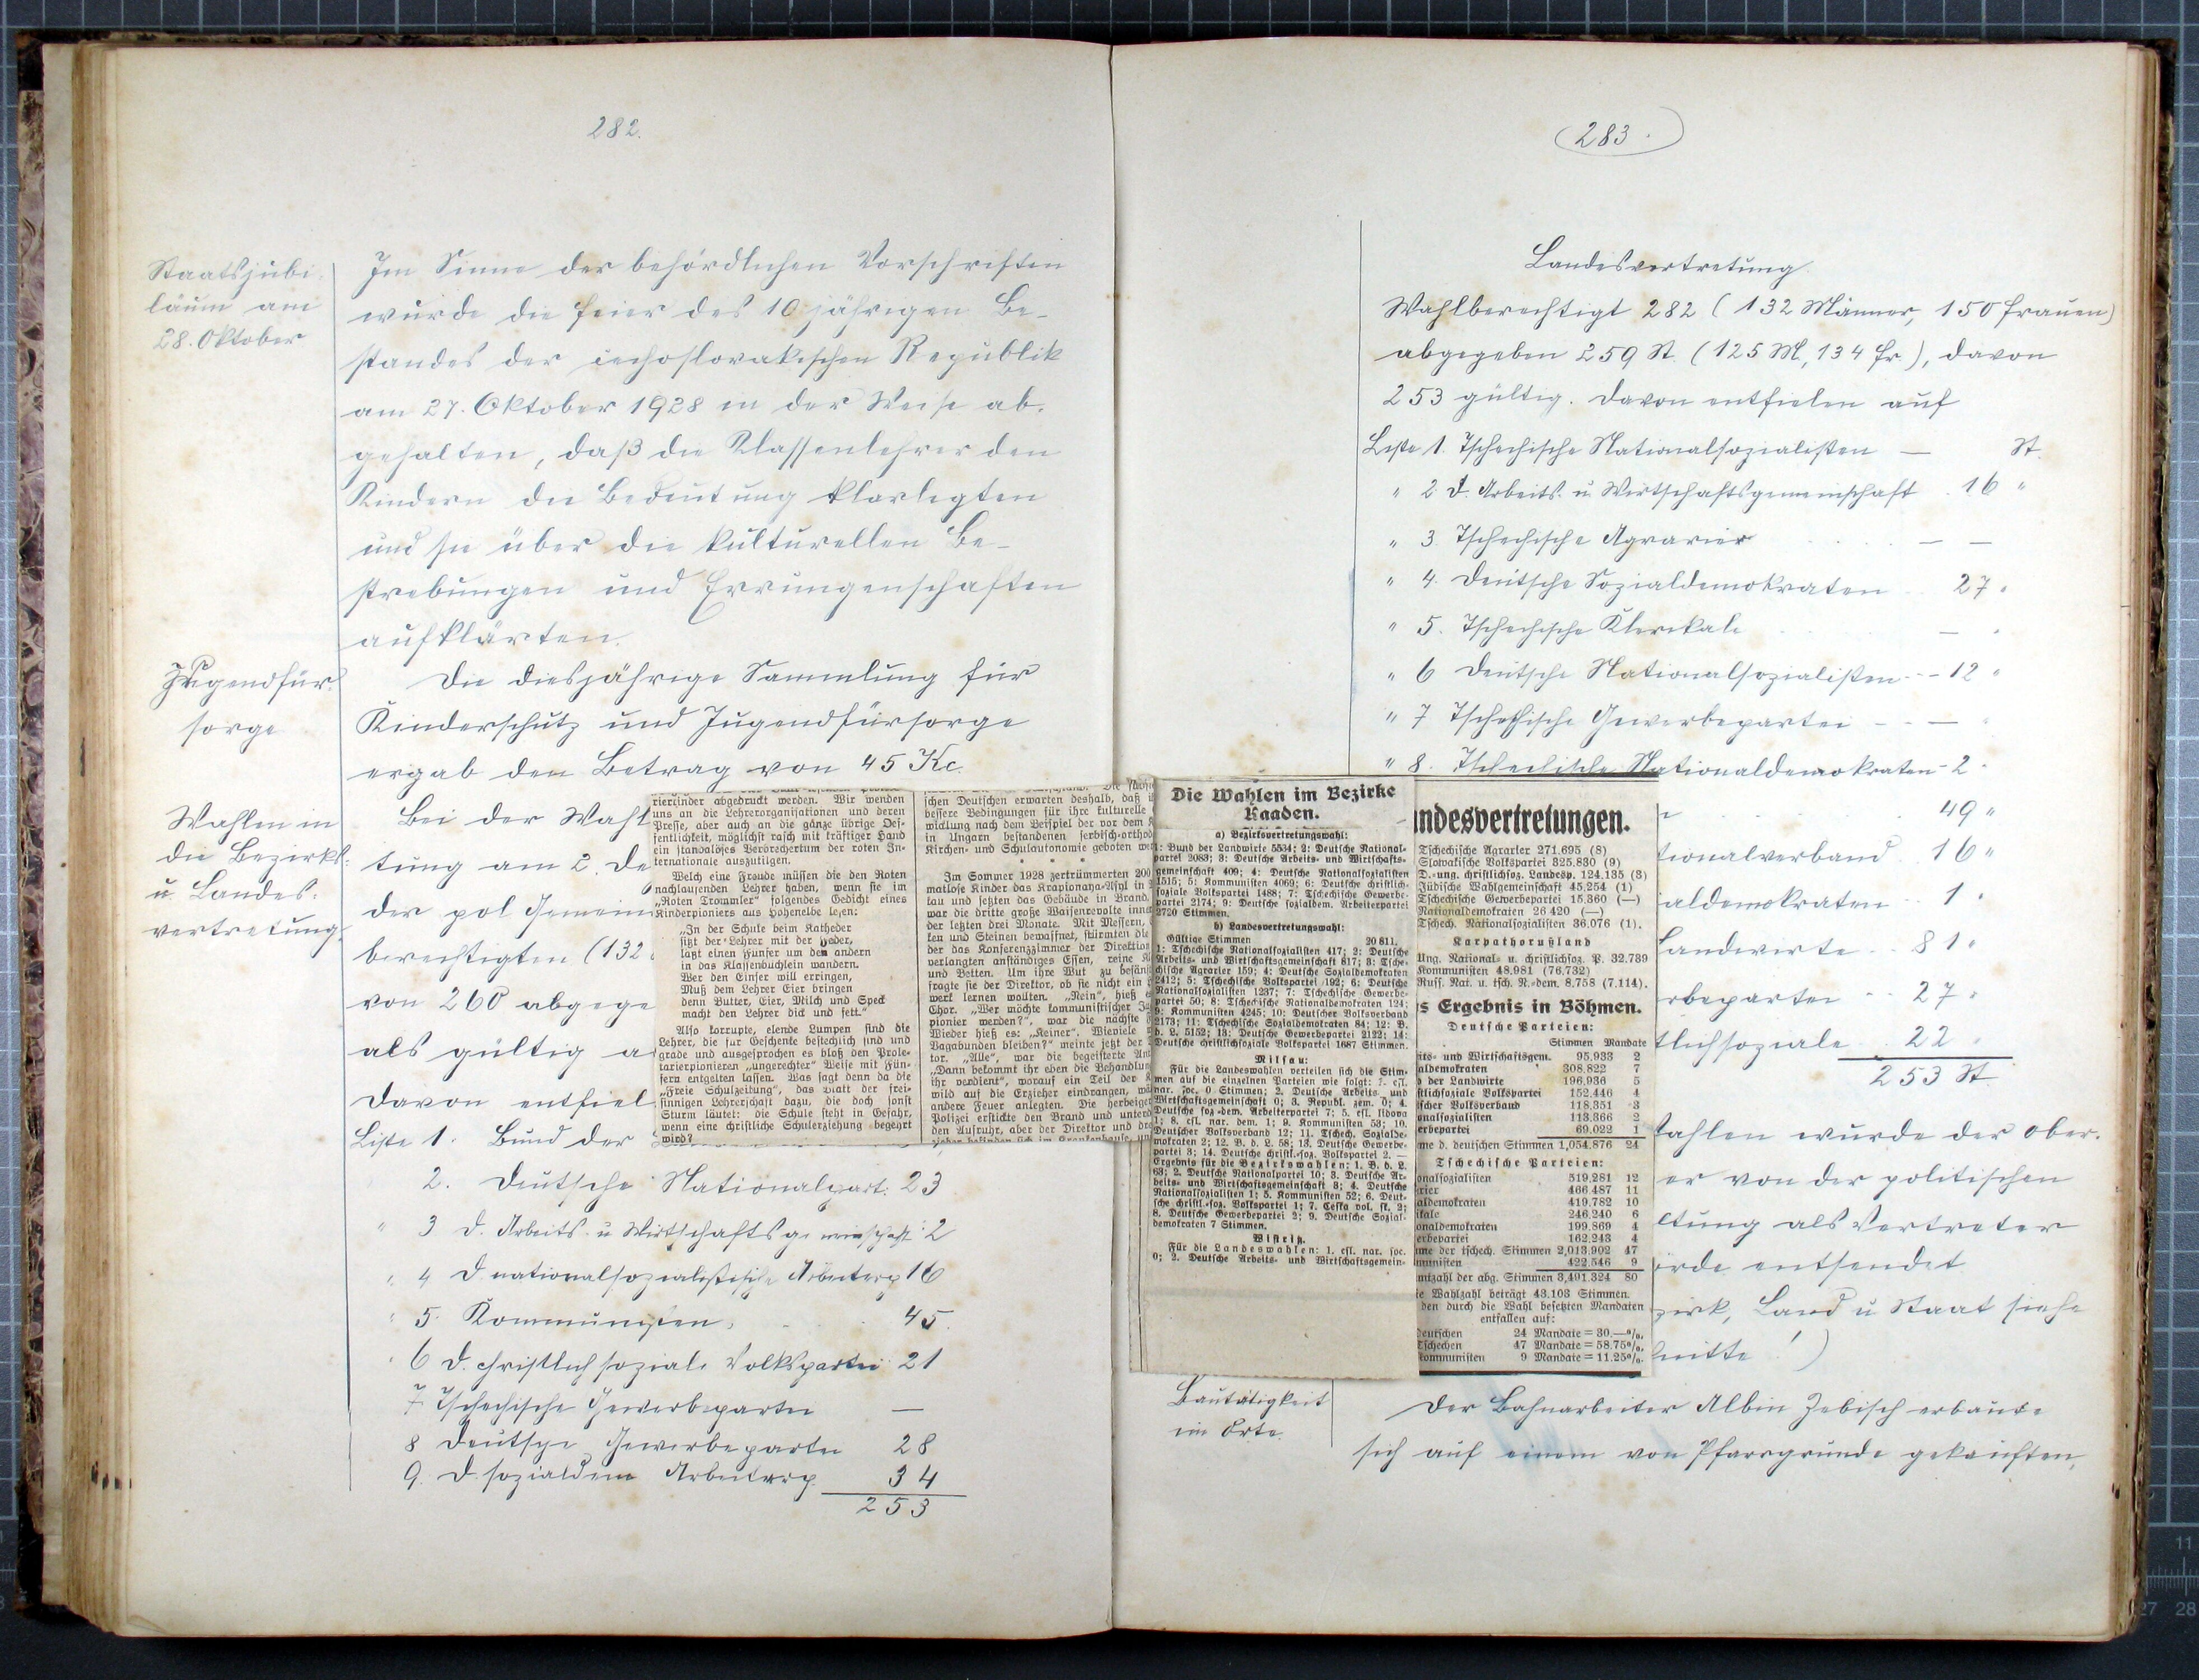 282.
Staatsjubi-
läum am
28. Oktober
Im Sinne der behördlichen Vorschriften
wurde die Feier des 10 jährigen Be-
standes der čechoslovakischen Republik
am 27. Oktober 1928 in der Weise ab-
gehalten, daß die Klassenlehrer den
Kindern die Bedeutung klarlegten
und sie über die kulturellen Be-
strebungen und Errungenschaften
aufklärten.
Jugendfür-
sorge
Die diesjährige Sammlung für
Kinderschutz und Jugendfürsorge
ergab den Betrag von 45 Kc.
Wahlen in
die Bezirks-
u. Landes-
vertretung.
Bei der Wahl
tung am 2. De
der pol Gemein
berechtigten (132
von 260 abgege
als gültig a
Davon entfiel
Liste 1. Bund der
2. Deutsche Nationalpart. 23
" 3 D. Arbeits- u Wirtschaftsgemeinschaft 2
" 4 D. nationalsozialistische Arbeiterp 16
" 5. Kommunisten 45.
" 6 D. christlich soziale Volkspartei 21
7 Tschechische Gewerbepartei —
8 Deutsche Gewerbepartei 28
9. D. sozialdem Arbeiterp. 34
253
rierkinder abgedruckt werden. Wir wenden
uns an die Lehrerorganisationen und deren
Presse, aber auch an die ganze übrige Oef-
fentlichkeit, möglichst rasch mit kräftiger Hand
ein skandalöses Verbrechertum der roten In-
ternationale auszutilgen.
Welch eine Freude müssen die den Roten
nachlaufenden Lehrer haben, wenn sie im
„Roten Trommler" folgendes Gedicht eines
Kinderpioniers aus Hohenelbe lesen:
„In der Schule beim Katheder
sitzt der Lehrer mit der Feder,
läßt einen Fünfer um den andern
in das Klassenbüchlein wandern.
Wer den Einser will erringen,
Muß dem Lehrer Eier bringen
denn Butter, Eier, Milch und Speck
macht den Lehrer dick und fett."
Also korrupte, elende Lumpen sind die
Lehrer, die für Geschenke bestechlich sind und
grade und ausgesprochen es bloß den Prole-
tarierpionieren „ungerechter" Weise mit Fün-
fern entgelten lassen. Was sagt denn da die
„Freie Schulzeitung", das Blatt der frei-
sinnigen Lehrerschaft dazu, die doch sonst
Sturm läutet: die Schule steht in Gefahr,
wenn eine christliche Schulerziehung begehrt
wird?
schen Deutschen erwarten deshalb, daß
bessere Bedingungen für ihre kulturelle
wicklung nach dem Beispiel der vor dem
in Ungarn bestandenen serbisch-orthod
Kirchen- und Schulautonomie geboten wer
* * *
Im Sommer 1928 zertrümmerten 200
matlose Kinder das Krapionaya-Asyl in
kau und setzten das Gebäude in Brand.
war die dritte große Waisenrevolte inner
der letzten drei Monate. Mit Messern,
ken und Steinen bewaffnet, stürmten die
der das Konferenzzimmer der Direktion
verlangten anständiges Essen, reine Kl
und Betten. Um ihre Wut zu besänf
fragte sie der Direktor, ob sie nicht ein
werk lernen wollten. „Nein", hieß
Chor. „Wer möchte kommunistischer Ju
pionier werden?", war die nächste
Wieder hieß es: „Keiner". Wieviele
Vagabunden bleiben?" meinte jetzt der
tor. „Alle", war die begeisterte Ant
„Dann bekommt ihr eben die Behandlun
ihr verdient", worauf ein Teil der
wild auf die Erzieher eindrangen, wä
andere Feuer anlegten. Die herbeige
Polizei erstickte den Brand und unterd
den Aufruhr, aber der Direktor und dre
Die Wahlen im Bezirke
Kaaden.
a) Bezirksvertretungswahl:
1: Bund der Landwirte 5534; 2: Deutsche National-
partei 2083; 3: Deutsche Arbeits- und Wirtschafts-
gemeinschaft 409; 4: Deutsche Nationalsozialisten
1515; 5: Kommunisten 4069; 6: Deutsche christlich-
soziale Volkspartei 1488; 7: Tschechische Gewerbe-
partei 2174; 9: Deutsche sozialdem. Arbeiterpartei
2720 Stimmen.
b) Landesvertretungswahl:
Gültige Stimmen 20 811.
1: Tschechische Nationalsozialisten 417; 2: Deutsche
Arbeits- und Wirtschaftsgemeinschaft 817; 3: Tsche-
chische Agrarier 159; 4: Deutsche Sozialdemokraten
2412; 5: Tschechische Volkspartei 192; 6: Deutsche
Nationalsozialisten 1237; 7: Tschechische Gewerbe-
partei 50; 8: Tschechische Nationaldemokraten 124;
9: Kommunisten 4245; 10: Deutscher Volksverband
2173; 11: Tschechische Sozialdemokraten 84; 12: B.
d. L. 5152; 13: Deutsche Gewerbepartei 2122; 14:
Deutsche christlichsoziale Volkspartei 1687 Stimmen.
Milsau:
Für die Landeswahlen verteilen sich die Stim-
men auf die einzelnen Parteien wie folgt: 1. csl.
nar. soc. 0 Stimmen; 2. Deutsche Arbeits- und
Wirtschaftsgemeinschaft 0; 3. Republ. zem. 0; 4.
Deutsche soz.-dem. Arbeiterpartei 7; 5. csl. lidova
1; 8. csl. nar. dem. 1; 9. Kommunisten 53; 10.
Deutscher Volksverband 12; 11. Tschech. Sozialde-
mokraten 2; 12. B. d. L. 58; 13. Deutsche Gewerbe-
partei 3; 14. Deutsche christl.-soz. Volkspartei 2. —
Ergebnis für die Bezirkswahlen: 1. B. d. L.
63; 2. Deutsche Nationalpartei 10; 3. Deutsche Ar-
beits- und Wirtschaftsgemeinschaft 3; 4. Deutsche
Nationalsozialisten 1; 5. Kommunisten 52; 6. Deut-
sche christl.-soz. Volkspartei 1; 7. Ceska vol. st. 2;
8. Deutsche Gewerbepartei 2; 9. Deutsche Sozial-
demokraten 7 Stimmen.
Wistritz.
Für die Landeswahlen: 1. csl. nar. soc.
0; 2. Deutsche Arbeits- und Wirtschaftsgemein-
ndesvertretungen.
Tschechische Agrarier 271.695 (8)
Slowakische Volkspartei 325.830 (9)
D.-ung. christlichsoz. Landesp. 124.135 (3)
Jüdische Wahlgemeinschaft 45.254 (1)
Tschechische Gewerbepartei 15.360 (—)
Nationaldemokraten 26 420 (—)
Tschech. Nationalsozialisten 36.076 (1).
Karpathorußland
Ung. National- u. christlichsoz. P. 32.739
Kommunisten 48.981 (76.732)
Russ. Nat. u. tsch. N.-dem. 8.758 (7.114).
s Ergebnis in Böhmen.
Deutsche Parteien:
Stimmen Mandate
its- und Wirtschaftsgem. 95.933 2
aldemokraten 308.822 7
d der Landwirte 196,936 5
stlichsoziale Volkspartei 152,446 4
scher Volksverband 118,351 3
onalsozialisten 113,366 2
erbepartei 69.022 1
me d. deutschen Stimmen 1,054.876 24
Tschechische Parteien:
onalsozialisten 519,281 12
rier 466.487 11
aldemokraten 419.782 10
ikale 246.240 6
onaldemokraten 199.869 4
erbepartei 162.243 4
me der tschech. Stimmen 2,013.902 47
munisten 422.546 9
mtzahl der abg. Stimmen 3,491.324 80
e Wahlzahl beträgt 43.103 Stimmen.
den durch die Wahl besetzten Mandaten
entfallen auf:
Deutschen 24 Mandate = 30.—%.
Tschechen 47 Mandate = 58.75%.
Kommunisten 9 Mandate = 11.25%.
283.
Landesvertretung
Wahlberechtigt 282 (132 Männer, 150 Frauen)
abgegeben 259 St. (125 M, 134 Fr.), davon
253 gültig. Davon entfielen auf
Liste 1. Tschechische Nationalsozialisten — St.
" 2 D. Arbeits- u. Wirtschaftsgemeinschaft 16 "
" 3. Tschechische Agrarier — —
" 4. Deutsche Sozialdemokraten 27 "
" 5. Tschechische Klerikale — "
" 6 Deutsche Nationalsozialisten - - 12 "
" 7 Tschechische Gewerbepartei - - — "
" 8. Tschechische Nationaldemokraten - 2 "
49 "
tionalverband 16 "
aldemokraten 1 "
Landwirte 81 "
rbepartei 27 "
tlichsoziale 22 "
253 St.
ahlen wurde der Ober-
er von der politischen
ltung als Vertreter
örde entsendet
zirk, Land u Staat siehe
nitte!)
Bautätigkeit
im Orte.
Der Bahnarbeiter Albin Zebisch erbaute
sich auf einem von Pfarrgrunde gekauften,
11
27 28